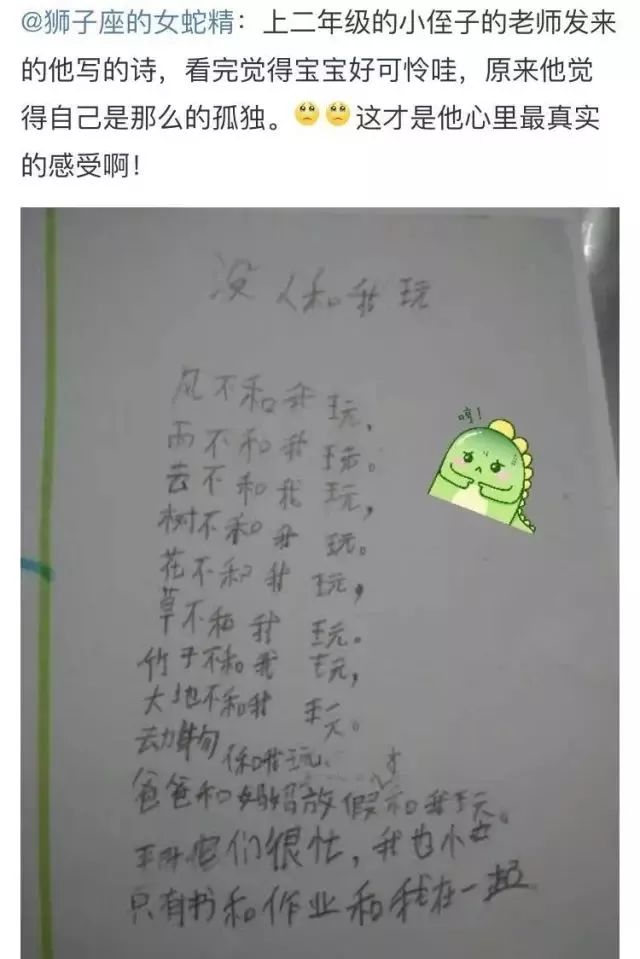 @狮子座的女蛇精：上二年级的小侄子的老师发来
的他写的诗，看完觉得宝宝好可怜哇，原来他觉
得自己是那么的孤独。🙁🙁这才是他心里最真实
的感受啊！
没人和我玩
风不和我玩，
雨不和我玩。
云不和我玩，
树不和我玩。
哼！
花不和我玩，
草不和我玩。
竹子不和我玩，
大地不和我玩。
动物不和我玩、
爸爸和妈妈放假才和我玩。
平时它们很忙，我也很忙
只有书和作业和我在一起